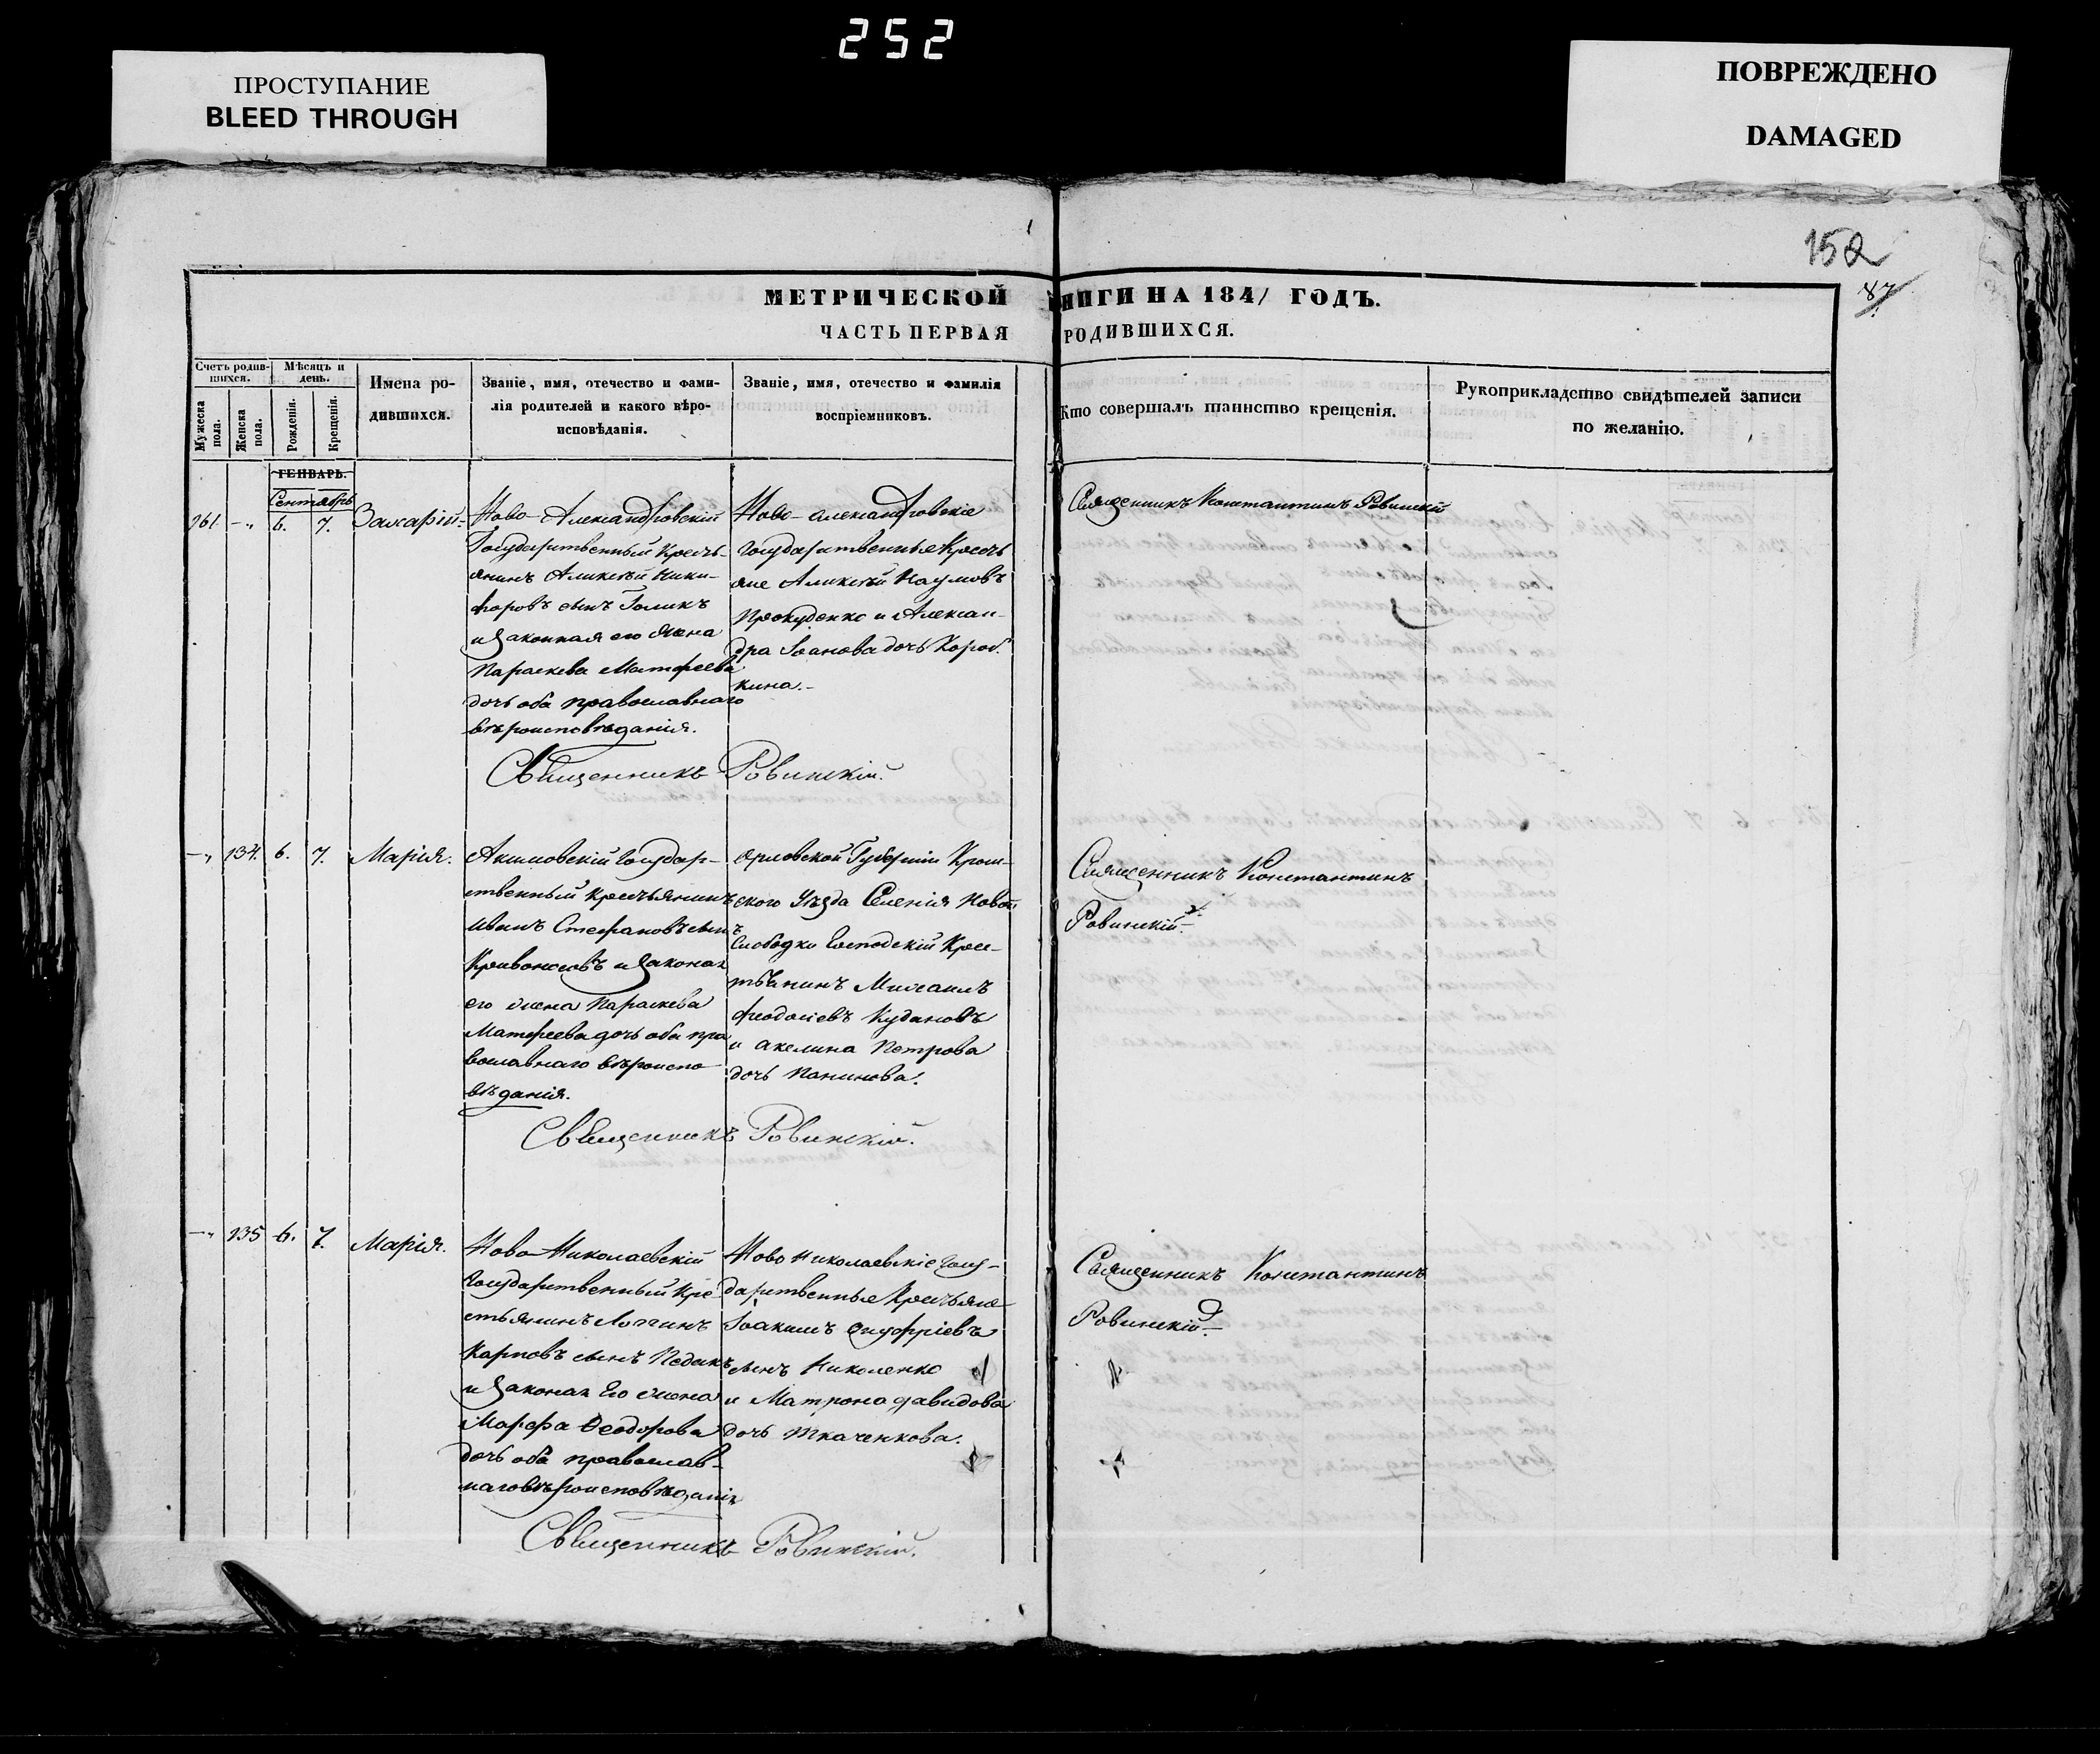 252
ПРОСТУПАНИЕ
BLEED THROUGH
ПОВРЕЖДЕНО
DAMAGED
152
87
МЕТРИЧЕСКОЙ КНИГИ НА 1841 ГОДЪ.
ЧАСТЬ ПЕРВАЯ РОДИВШИХСЯ.
Счетъ родив-
шихся.
Мѣсяцъ и
день.
Мужеска
пола.
Женска
пола.
Рожденія.
Крещенія.
Имена ро-
дившихся.
Званіе, имя, отечество и фами-
лія родителей и какого вѣро-
исповѣданія.
Званіе, имя, отечество и фамилія
воспріемниковъ.
Кто совершалъ таинство крещенія.
Рукоприкладство свидѣтелей записи
по желанію.
ГЕНВАРЬ.
Сентябрь
161 6. 7. Захарій.
Ново-Александровскій
Государственный Кресть-
янинъ Аликсѣй Ники-
форовъ сынъ Голикъ
и Законная его Жена
Параскева Матфеева
дочь оба православнаго
вѣроисповѣданія.
Ново-александровскіе
Государственные Кресть
яне Аликсѣй Наумовъ
Прокуденко и Алексан-
дра Іоанова дочь Короб.
кина.-
Священникъ Константинъ Ровинскій
Священникъ Ровинскій.
134. 6. 7. Марія.
Акимовскій Государ-
ственный Крестьянинъ
Иванъ Стефановъ сынъ
Кривоносовъ и Законая
его жена Параскева
Матфеева дочь оба пра
вославнаго вѣроиспо
вѣданія.
Орловской Губерніи Кром-
ского Уѣзда Селенія Новой
Слободки Господскій Крес-
тьянинъ Михаилъ
Феодосіевъ Кудановъ
и Акелина Петрова
дочь Панинова.
Священникъ Константинъ
Ровинскій.
Священникъ Ровинскій.
135 6. 7. Марія.
Ново Николаевскій
Государственный Кре-
стьянинъ Логинъ
Карповъ сынъ
и Законая Его жена
Марфа Феодорова
дочь оба православ-
наго вѣроисповѣданія
Ново Николаевскіе Госу-
дарственные Крестьяне
Іоакимъ Онуфріевъ
сынъ Николенко
и Матрона давидова
дочь Ткаченкова.
Священникъ Константинъ
Ровинскій.
Священникъ Ровинскій.